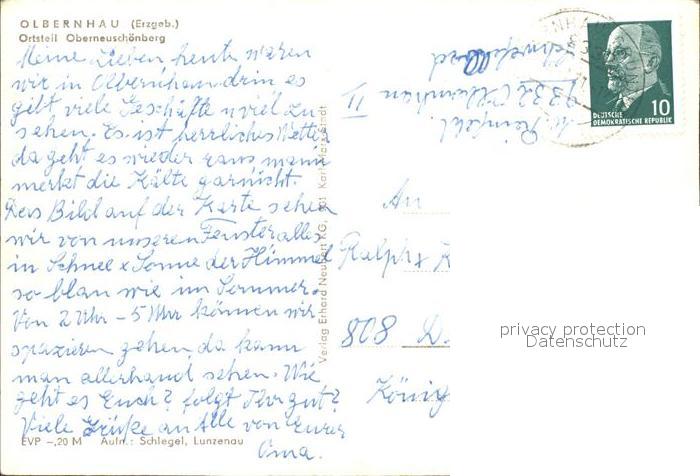 OLBERNHAU (Erzgeb.)
Ortsteil Oberneuschönberg
Meine Lieben heute waren
wir in Olbernhau drin es
gibt viele Geschäfte u viel zu
sehen. Es ist herrliches Wetter
da geht es wieder raus mann
merkt die Kälte garnicht.
Das Bild auf der Karte sehen
wir von unseren Fenster alles
in Schnee x Sonne der Himmel
so blau wie im Sommer.
Von 2 Uhr – 5 Uhr können wir
spazieren gehen, da kann
man allerhand sehen. Wie
geht es Euch? folgt Ihr gut?
Viele Grüße an Alle von Eurer
Oma.
EVP –,20 M Aufn.: Schlegel, Lunzenau
Verlag Erhard Neubert KG, Karl-Marx-Stadt
9332 Olbernhau II
An
Ralph x K
808 D.
König
DEUTSCHE
DEMOKRATISCHE REPUBLIK
10
privacy protection
Datenschutz